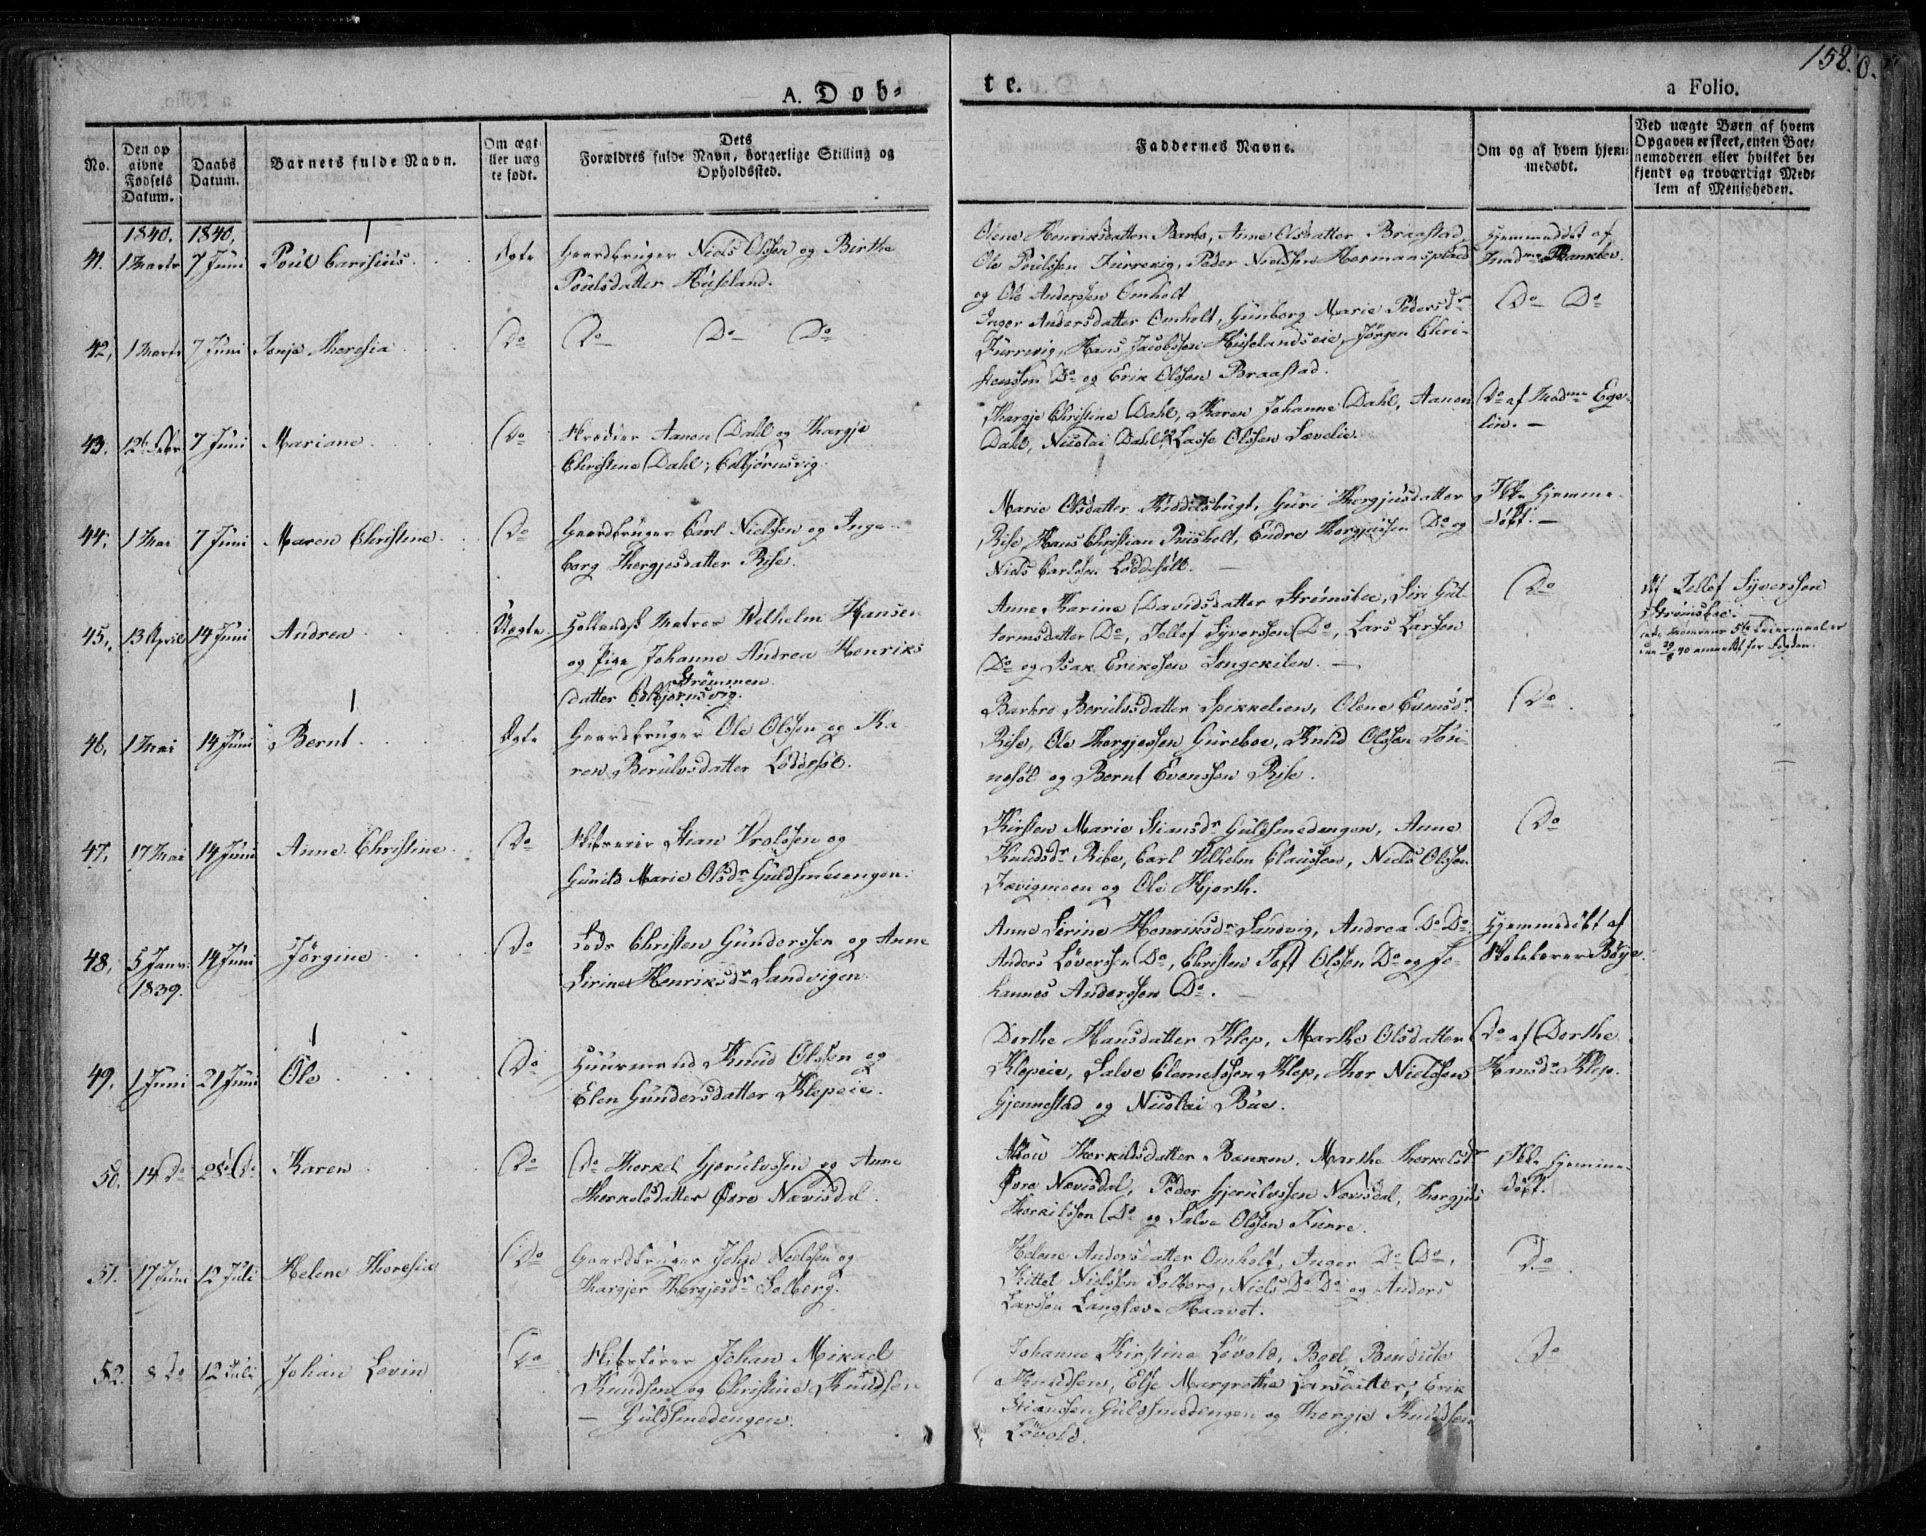 158.
A. Døb-
te.
a Folio.
No.
Den op
givne
Fødsels
Datum.
Daabs
Datum.
Barnets fulde Navn.
Om ægt
ller uæg
te født.
Dets
Forældres fulde Navn, borgerlige Stilling og
Opholdssted.
Faddernes Navne.
Om og af hvem hjem-
medøbt.
Ved uægte Børn af hvem
Opgaven er skeet, enten Bar-
nemoderen eller hvilket be-
kjendt og troværdigt Med-
lem af Menigheden.
1840. 1840.
41. 1 Marts 7 Juni Poul Carisius Ægte
Gaardbruger Niels Olssen og Birthe
Poulsdatter Huseland.
Olene Henriksdatter Barbo, Anne Olsdatter Braastad
Ole Poulssen Furrevig, Peder Nielssen Hermansplads
og Ole Anderssen Omholt
Hjemmedøbt af
Mad.me
42. 1 Marts 7 Juni Tonje Theresia Do
Do Do Do
Inger Andersdatter Omholt, Gunborg Marie Pedersdr
Furrevig, Hans Jacobssen Huselandseie, Jørgen Chri-
stenssen Do og Erik Olssen Braastad.
Do Do
43. 12te Febr 7 Juni Mariane Do
Skrædder Aanon Dahl og Thargje
Christine Dahl, Colbjørnsvig.
Thargje Christine Dahl, Karen Johanne Dahl, Aanon
Dahl, Nicolai Dahl og Lasse Olssen Sævelie.
Do af Madme Ege-
lin.
44. 1 Mai 7 Juni Maren Christine Do
Gaardbruger Carl Nielssen og Inge-
borg Thorgjesdatter Rise.
Marie Olsdatter Kiddelsbugt, Guri Thorgjusdatter
Rise, Hans Christian Friisholt, Endre Thorgjussen Do og
Niels Carlssen Løddesøl.
Ikke hjemme-
døbt.
45. 13 April 14 Juni Andrea Uægte
Hollandsk Matros Wilhelm Hansen
og Pige Johanne Andrea Henriks
Strømmen
datter Colbjørnsvig.
Anne Karine Davidsdatter Strømsboe, Siri Gut-
tormsdatter Do, Tellef Syverssen Do, Lars Larssen
Do og Isak Erikssen Longekilen.
Do
Af Tellef Syverssen
Strømsboe.
46. 1 Mai 14 Juni Bernt Ægte
Gaardbruger Ole Olssen og Ka
ren Berulvsdatter Løddesøl.
Barbro Berulvsdatter Spikkelien, Olene Evensdr
Rise, Ole Thorgjessen Gureboe, Knud Olssen
og Bernt Evenssen Rise.
Do
47. 17 Mai 14 Juni Anne Christine Do
Skibseier Stian Vrolssen og
Gunild Marie Olsdr Guldsmedengen.
Kirsten Marie Stiansdr Guldsmedengen, Anne
Knudsdr Ribe, Carl Vilhelm Claussen, Niels Olssen
Fævigmoen og Ole Hjorth.
Do
48. 5 Janv. 14 Juni Jørgine Do
1839.
Lods Christen Gunderssen og Anne
Sirine Henriksdr Sandvigen.
Anne Sirine Henriksdr Sandvig, Andrea Do Do
Anders Løverssen Do, Christen Toft Olssen Do og Jo-
hannes Anderssen Do.
Hjemmedøbt af
Skolelærer Bøye.
49. 1 Juni 21 Juni Ole Do
Huusmand Knud Olssen og
Elen Gundersdatter Klepeie.
Dorthe Hansdatter Klep, Marthe Olsdatter
Klepeie, Salve Clemetssen Klep, Thor Nielssen
Gjennestad og Nicolai Bue.
Do af Dorthe
Hansdr Klep.
50. 14 Do 28 Do Karen Do
Do Thorkel Gjerulvssen og Anne
Thorkelsdatter Øvre Nævisdal.
Thorkildsdatter Banken, Marthe Thorkelsdr
Øvre Nævisdal, Peder Gjerulvssen Nævisdal, Thorgjus
Thorkilssen Do og Salve Olssen Furre.
Ikke hjemme-
døbt.
51. 17 Juni 12 Juli Helene Theresie Do
Gaardbruger John Nielssen og
Thargjer Thorgjesdr Solberg.
Helene Andersdatter Omholt, Inger Do Do,
Kittel Nielssen Solberg, Niels Do Do og Anders
Larssen Langsæv Haavet.
Do
52. 8 Do 12 Juli Johan Levin Do
Skibsfører Johan Mikael
Knudssen og Christine Knudsen
Guldsmedengen.
Johanne Kirstine Løvold, Boel Bendicte
Knudsen, Else Margrethe Larsdatter, Erik
Stianssen Guldsmedengen og Thorgie Knudssen
Løvold.
Do